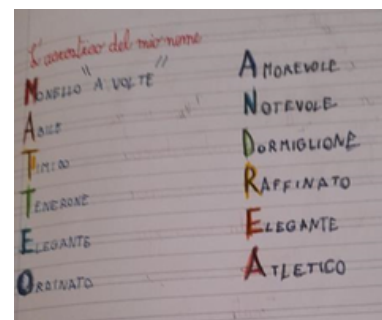 L'acrostico del mio nome
MONELLO "A VOLTE"
AGILE
TIMIDO
TENERONE
ELEGANTE
ORDINATO
AMOREVOLE
NOTEVOLE
DORMIGLIONE
RAFFINATO
ELEGANTE
ATLETICO